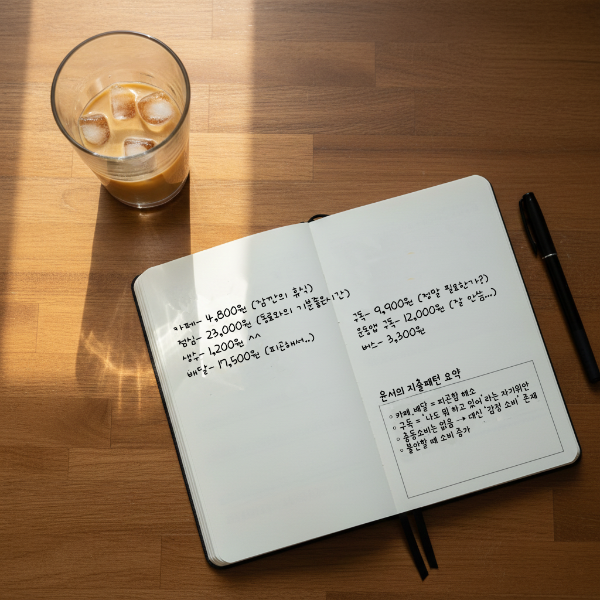 카페- 4,800원 (잠깐의 휴식)
점심- 23,000원 (동료와의 기분좋은시간)
생수- 1,200원 ^^
배달- 17,500원 (피곤해서..)
구독- 9,900원 (정말 필요한가?)
운동앱 구독- 12,000원 (잘 안씀...)
버스- 3,300원
은서의 지출패턴 요약
◦ 카페, 배달 = 피곤함 해소
◦ 구독 = '나도 뭘 하고 있어'라는 자기위안
◦ 충동소비는 없음 → 대신 '감정 소비' 존재
◦ 불안할 때 소비 증가